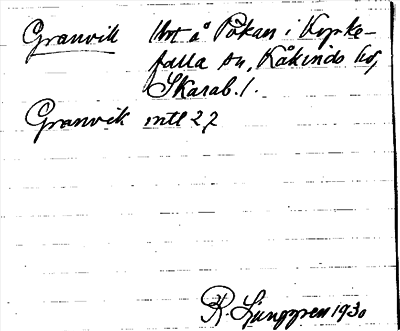 Granvik Vrt å Påkan i Kyrke-
falla sn, Kåkinds hd,
Skarab. l.
Granvik mtl 27
R. Ljunggren 1930